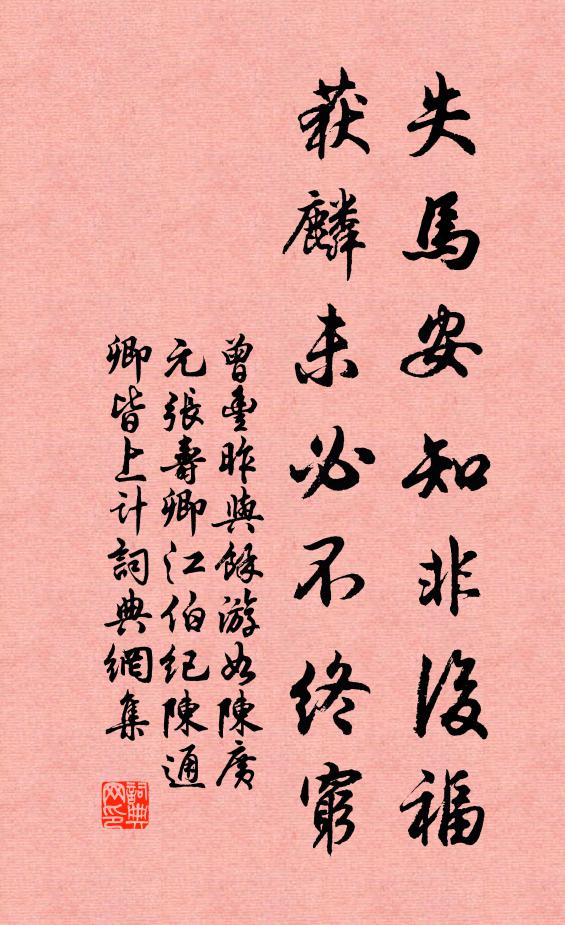 失馬安知非後福
获麟未必不终窮
曾豊昨與餘游如陳廣
元張壽卿江伯紀陳通
卿皆上计詞典網集
詞典
网印